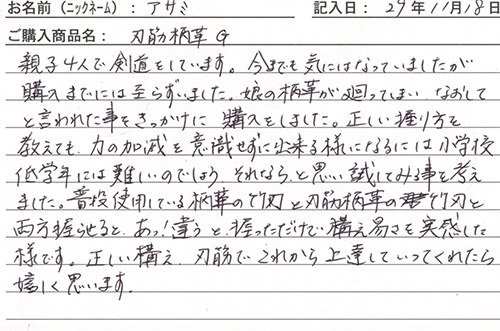 お名前（ニックネーム）：アサミ 記入日：29年11月18日
ご購入商品名：刃筋柄革G
親子4人で剣道をしています。今までも気にはなっていましたが
購入までには至らずいました。娘の柄革が廻ってしまい なおして
と言われた事をきっかけに 購入をしました。正しい握り方を
教えても、力の加減を意識せずに出来る様になるには小学校
低学年には難しいのでしょう それならと思い試してみる事を考え
ました。普段使用している柄革の竹刀と刃筋柄革の竹刀と
両方握らせると、あっ！違うと、握っただけで構え易さを実感した
様です。正しい構え、刃筋でこれから上達していってくれたら
嬉しく思います。